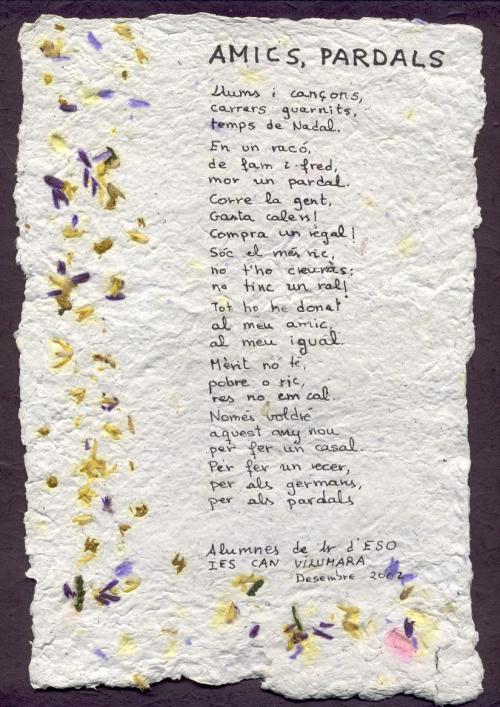 AMICS, PARDALS
Llums i cançons,
carrers guarnits,
temps de Nadal.
En un racó,
de fam i fred,
mor un pardal.
Corre la gent,
Gasta calers!
Compra un regal!
Sóc el més ric,
no t'ho creuràs:
no tinc un ral!
Tot ho he donat
al meu amic,
al meu igual.
Mèrit no té,
pobre o ric,
res no em cal.
Només voldré
aquest any nou
per fer un casal.
Per fer un recer,
per als germans,
per als pardals
Alumnes de 1r d'ESO
IES CAN VILUMARA
Desembre 2002